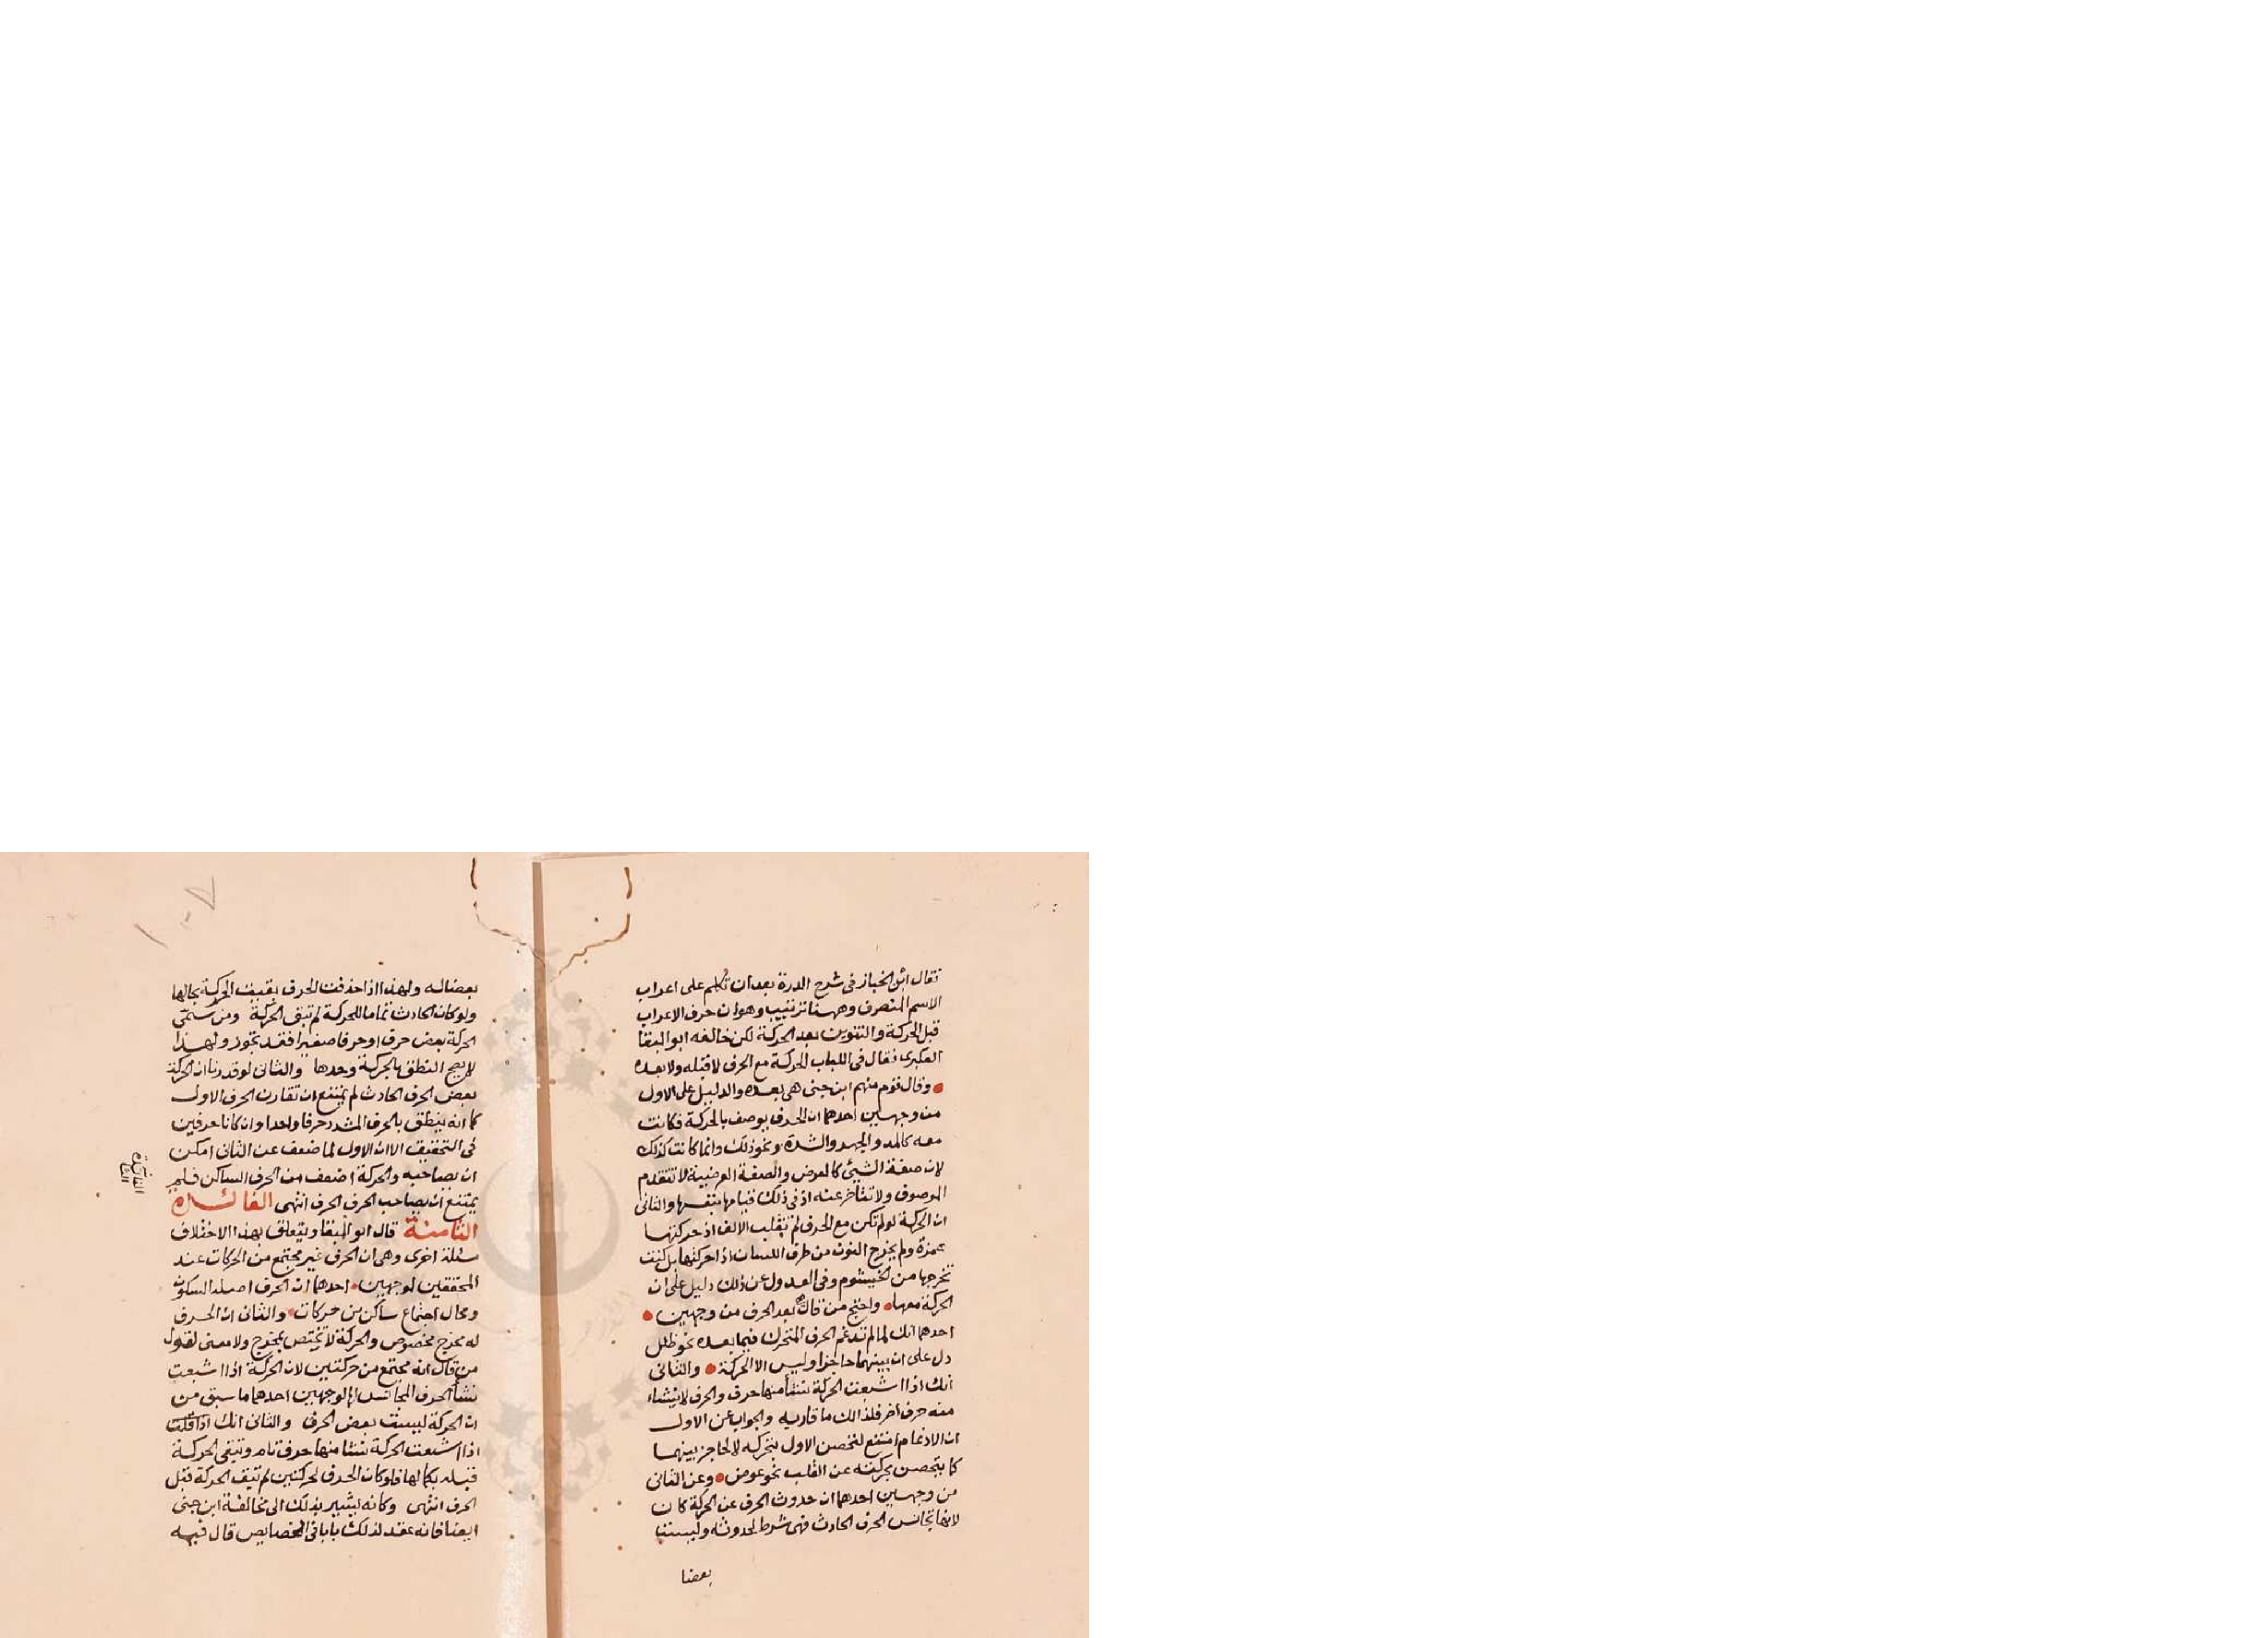 فقال ابن الخباز فى شرح الدرة بعد ان تكلم على اعراب
الاسم المنصرف وههنا ترتيب وهو ان حرف الاعراب
قبل الحركة والتنوين بعد الحركة لكن خالفه ابو البقا
العكبرى فقال فى اللباب الحركة مع الحرف لا قبله ولا بعده
وقال قوم منهم ابن جنى هى بعده والدليل على الاول
من وجهين احدهما ان الحرف يوصف بالحركة فكانت
معه كالمد والجهر والشدة ونحو ذلك وانما كانت كذلك
لان صفة الشيئ كالعرض والصفة العرضية لا تتقدم
الموصوف ولا تتأخر عنه اذ فى ذلك قيامها بنفسها والثانى
ان الحركة لو لم تكن مع الحرف لم تقلب الالف اذ حركتها
همزة ولم يخرج النون من طرف اللسان اذا حركتها بل كنت
تخرجها من الخيشوم وفى العدول عن ذلك دليل على ان
الحركة معها واحتج من قال بعد الحرف من وجهين
احدهما انك لما لم تدغم الحرف المتحرك فيما بعده نحو طلل
دل على ان بينهما حاجزا وليس الا الحركة والثانى
انك اذا اشبعت الحركة نشأ منها حرف والحرف لا ينشاء
منه حرف اخر فلذالك ما قاربه والجواب عن الاول
ان الادغام امتنع لتحصن الاول بتحركه لا لحاجز بينهما
كما يتحصن بحركته عن القلب نحو عوض وعن الثانى
من وجهين احدهما ان حدوث الحرف عن الحركة كان
لانها تجانس الحرف الحادث فهى شرط لحدوثه وليست
بعضا
بعضا له ولهذا اذا حذفت الحرف بقيت الحركة بحالها
ولو كان الحادث تماما للحركة لم تبق الحركة ومن سمى
الحركة بعض حرف او حرفا صغيرا فقد تجوز ولهذا
لا يصح النطق بالحركة وحدها والثانى لو قدرنا ان الحركة
بعض الحرف الحادث لم يمتنع ان تقارن الحرف الاول
كما انه ينطق بالحرف المشدد حرفا واحدا وان كانا حرفين
فى التحقيق الا ان الاول لما ضعف عن الثانى امكن
ان يصاحبه والحركة اضعف من الحرف الساكن فلم
يمتنع ان يصاحب الحرف الحرف انتهى الفائدة
الثامنة قال ابو البقا ويتعلق بهذا الاختلاف
مسئلة اخرى وهى ان الحرف غير مجتمع من الحركات عند
المحققين لوجهين احدهما ان الحرف اصله السكون
ومحال اجتماع ساكن من حركات والثانى ان الحرف
له مخرج مخصوص والحركة لا تختص بمخرج ولا معنى لقول
من قال انه مجتمع من حركتين لان الحركة اذا اشبعت
نشأ الحرف المجانس لها لوجهين احدهما ما سبق من
ان الحركة ليست بعض الحرف والثانى انك اذا قلت
اذا اشبعت الحركة نشا منها حرف تام وتبقى الحركة
قبله بكمالها فلو كان الحرف لحركتين لم تبق الحركة قبل
الحرف انتهى وكانه يشير بذلك الى مخالفة ابن جنى
ايضا فانه عقد لذلك بابا فى الخصايص قال فيه